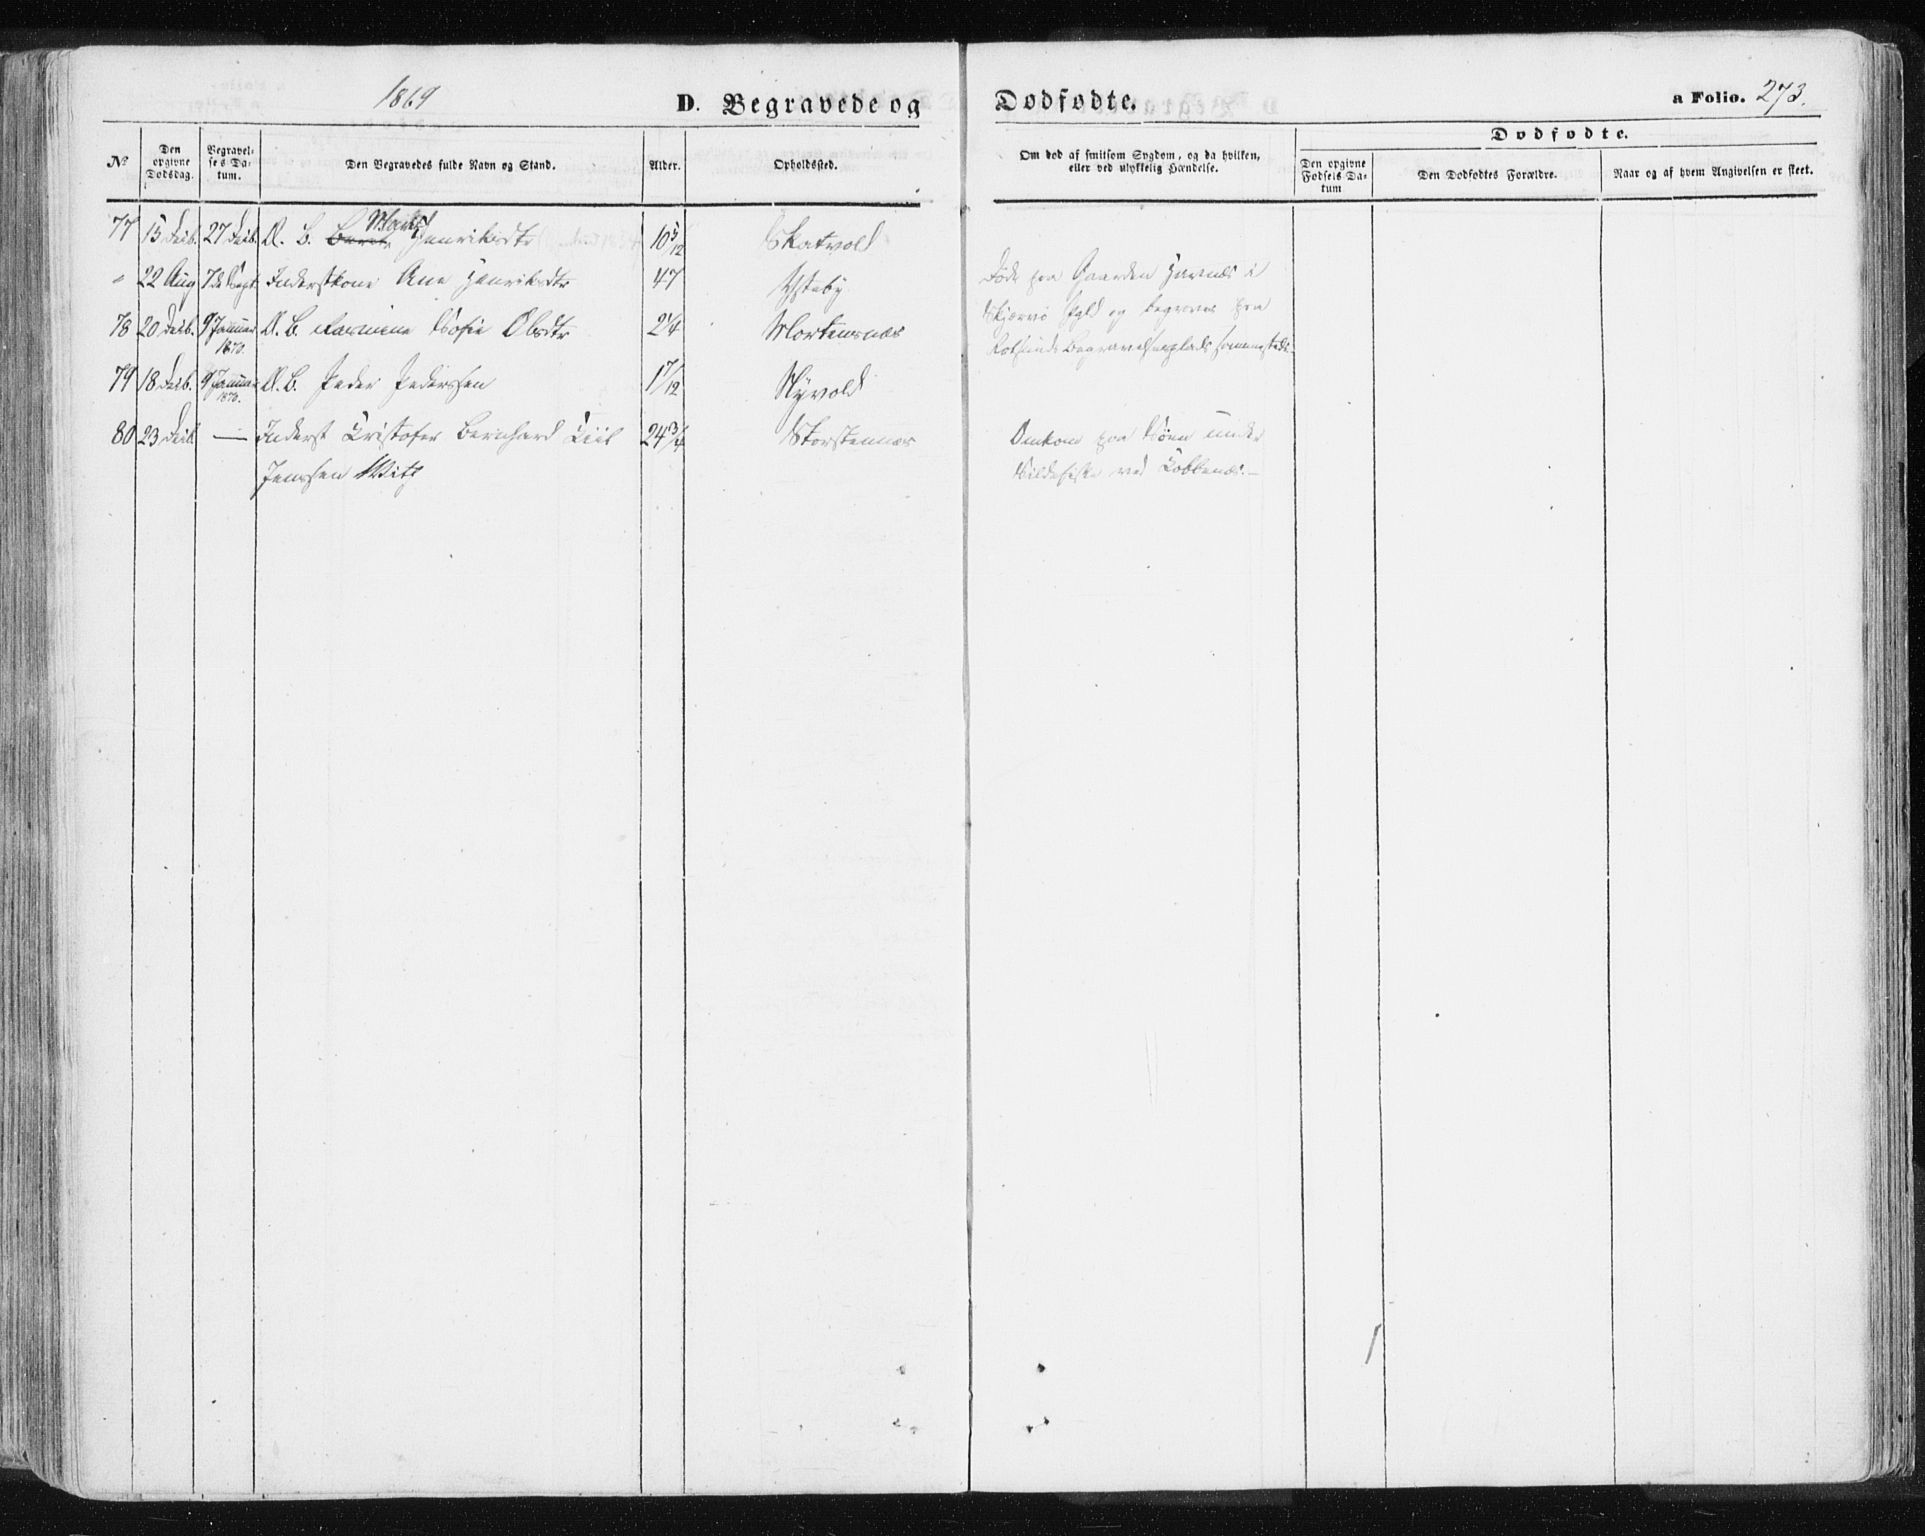 1869
D. Begravede og Dødfødte.
a Folio. 273.
No
Den opgivne Dødsdag.
Begravelses Datum.
Den Begravedes fulde Navn og Stand.
Alder.
Opholdssted.
Om død af smitsom Sygdom, og da hvilken, eller ved ulykkelig Hændelse.
Dødfødte.
Den opgivne Fødsels Datum
Den Dødfødtes Forældre.
Naar og af hvem Angivelsen er skeet.
77 15 Decb. 27 Decb. D. B. Henriksdtr 10 5/12 Skatvold
" 22 Aug 7de Sept. Inderstkone Ane Henriksdtr 47 Ysteby Døde paa Gaarden Havnæs i
Skjervø Pgld og begraves paa
Rotsunds Begravelsesplads sammesteds.
78 20 Decb. 9 Januar 1870. D. B. Sofie Olsdtr 2 1/4 Mortensnæs
79 18 Decb. 9 Januar 1870. D. B. Peder Pederssen 1 7/12 Nyvold
80 23 Decb — Inderst Kristofer Bernhard Kiil 24 3/4 Storstennæs Omkom paa Søen under
Jenssen Sildefiske ved Kobbenæs.—